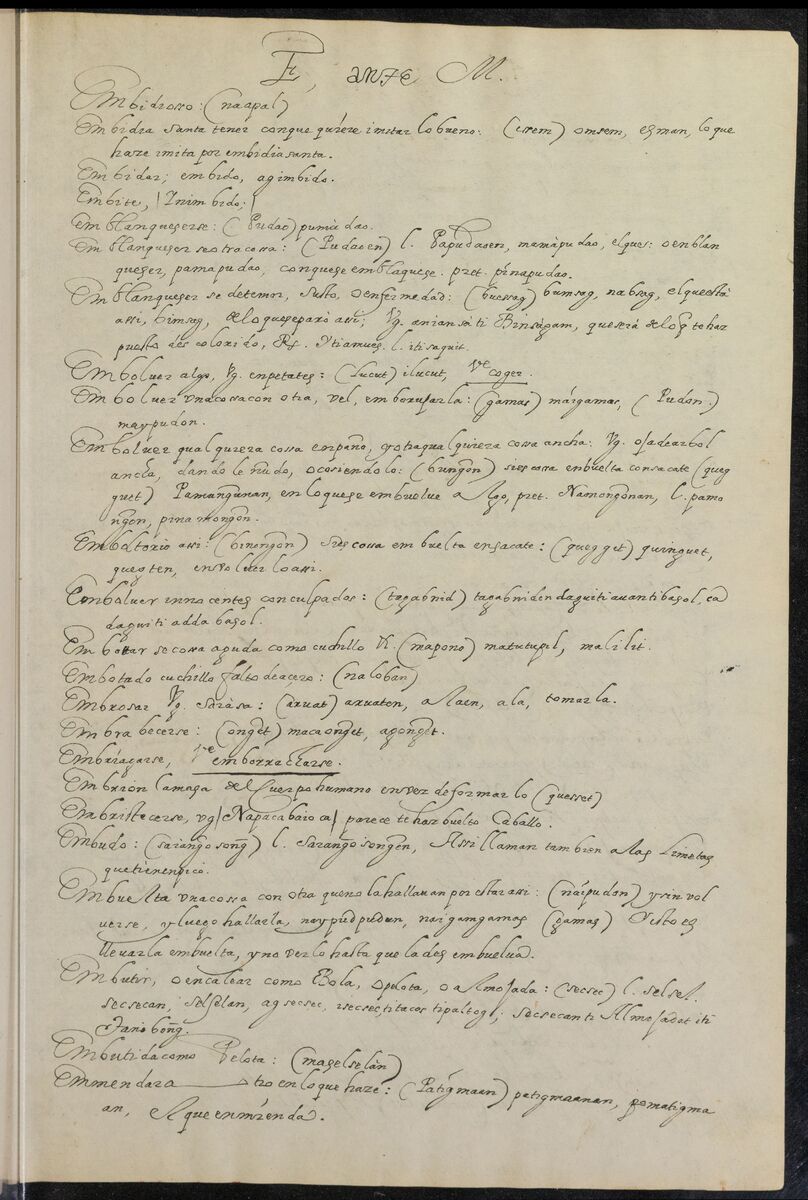 E, ante M.
Embidioso: (naapal)
Embidia santa tener conque quiere imitar lo bueno: (esem) omsem, esman, lo que
haze imita por embidia santa.
Embidar; embido, agimbido.
Embite, | Inimbido; |
Emblanqueserse: (Pudao) pumudao.
Emblanqueser se otra cossa: (Pudaoen) l. Papudaoen, mamapudao, el ques: o enblan
queser, pamapudao, conquese emblaquese. pret. pinapudao.
Emblanqueser se de temor, susto, o enfermedad: (buessag) bumsag, nabsag, el que està
assi, bimsag, de lo que se parò assi; Vg. aniansa ti Binságam, que serà de lo q̃ te haz
puesto des colorido, Rs. Ytiamues. l. iti saquit.
Embolver algo, Vg. en petates: (Lucut) ilucut, Ve coger.
Embolver vna cossa con otra, vel, emborujarla: (gamas) márgamas, (Pudon.)
maypudon.
Embolver qual quiera cossa en paño, y otra qual quiera cossa ancha: Vg. oja de arbol
ancha, dando le nudo, o cosiendolo: (bungon) si es cossa enbuelta con sacate (queg
guet) Pamangunan, en lo quese embuelue a Algo, pret. Namongonan, l. pamo
ngon, pina mongon.
Emboltorio assi: (binongon) si es cossa embuelta en sacate: (quegget) quinguet,
quegten, enbolver lo assi.
Embolver innocentes con culpados: (tagabnid) tagabniden daguiti auan ti basol, ca
daguiti adda basol.
Embotar se cossa aguda como cuchillo &. (mapono) matutupil, malilit.
Embotado cuchillo falto de acero: (naloban)
Embrosar Vg. (aruat) aruaten, alaen, ala, tomarla.
Embrabecerse: (onget) macaonget, agonget.
Embriagarse, Ve emborracharse.
Embrion la masa del Cuerpo humano en vez de formarlo (quesset)
Embristecerse, vg | Napacabaioca | parece te haz buelto Caballo.
Embudo: (sarangosong) l. Sarangosongen, Assi llaman tambien a las Limetas
que tienen pico.
Embuelta vna cossa con otra que no la hallauan por estar assi: (naipudon) y sin vol
verse, y luego hallarla, naypudpudun, naigamgamas (gamas) Visto es
llevarla embuelta, y no verlo hasta que la des embuelua.
Embutir, o encalcar como Bola, o pelota, o almojada: (secsec) l. selsel.
secsecan, selselan, agsecsec, isecsec, ti tacos ti paltog; secsecan ti Almojadat iti
Embutida como Pelota: (maselselàn)
Emmendar a otro en lo que haze: (Patigmaan) patigmaanan, pomatigma
an, el que enmienda.